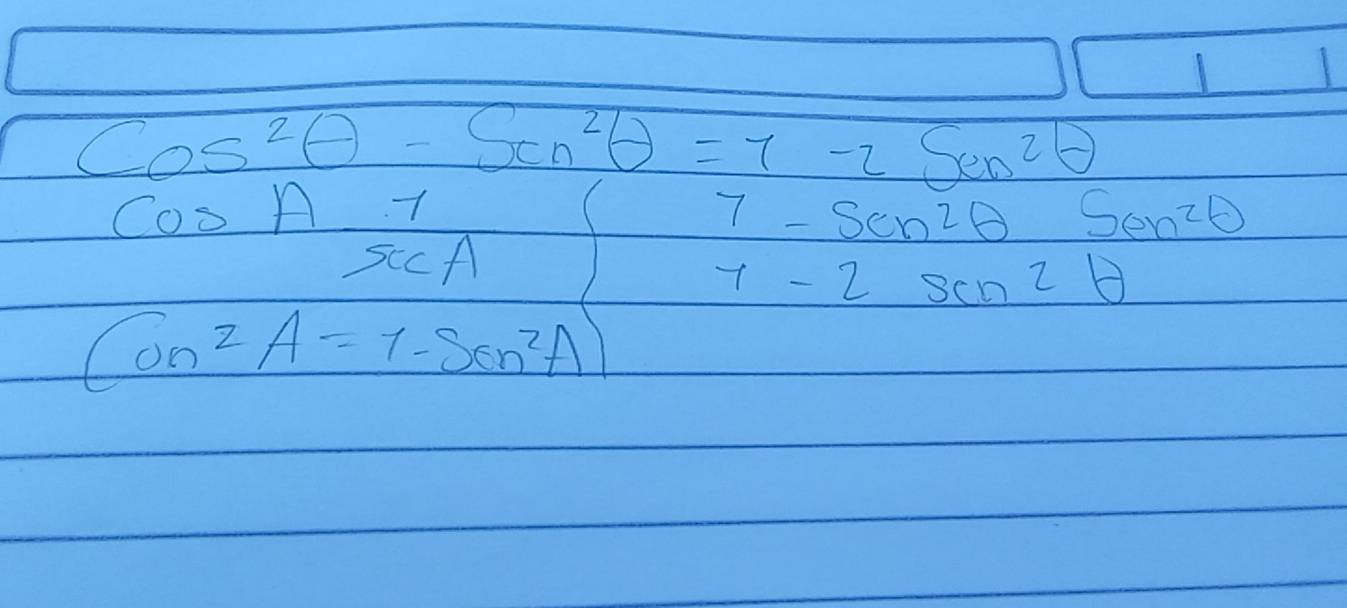 Cos²θ - Sen²θ = 1 - 2 Sen²θ
Cos A 1 1 - Sen²θ Sen²θ
sec A 1 - 2 sen² θ
Con² A = 1 - Sen² A